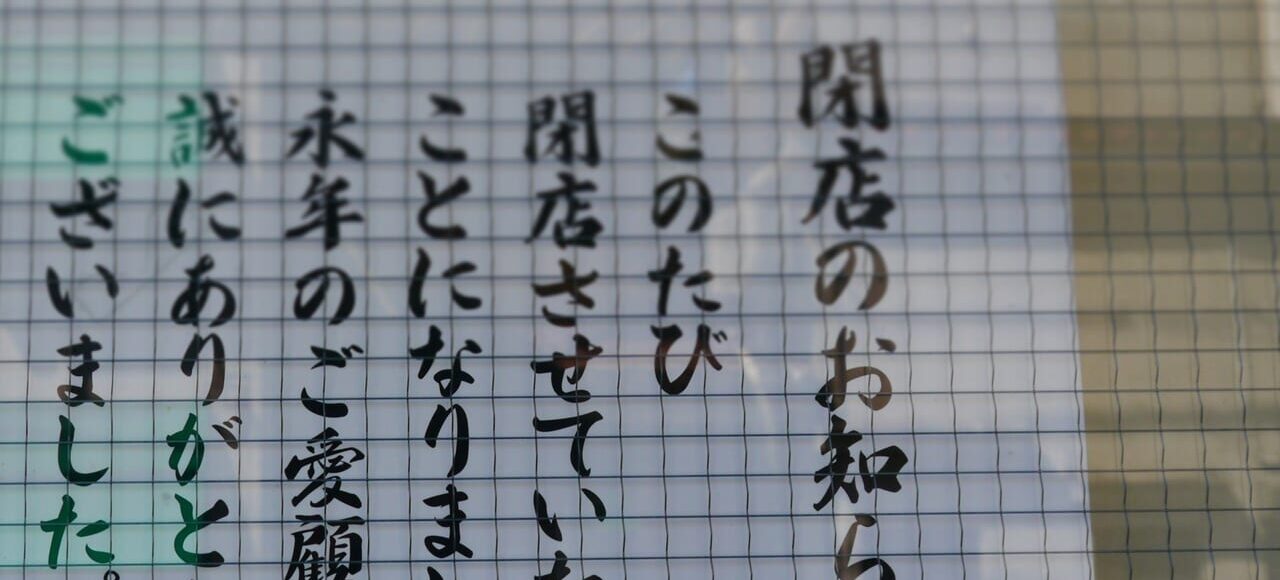 閉店のお知ら
このたび
閉店させていた
ことになりまし
永年のご愛顧
誠にありがと
ございました。